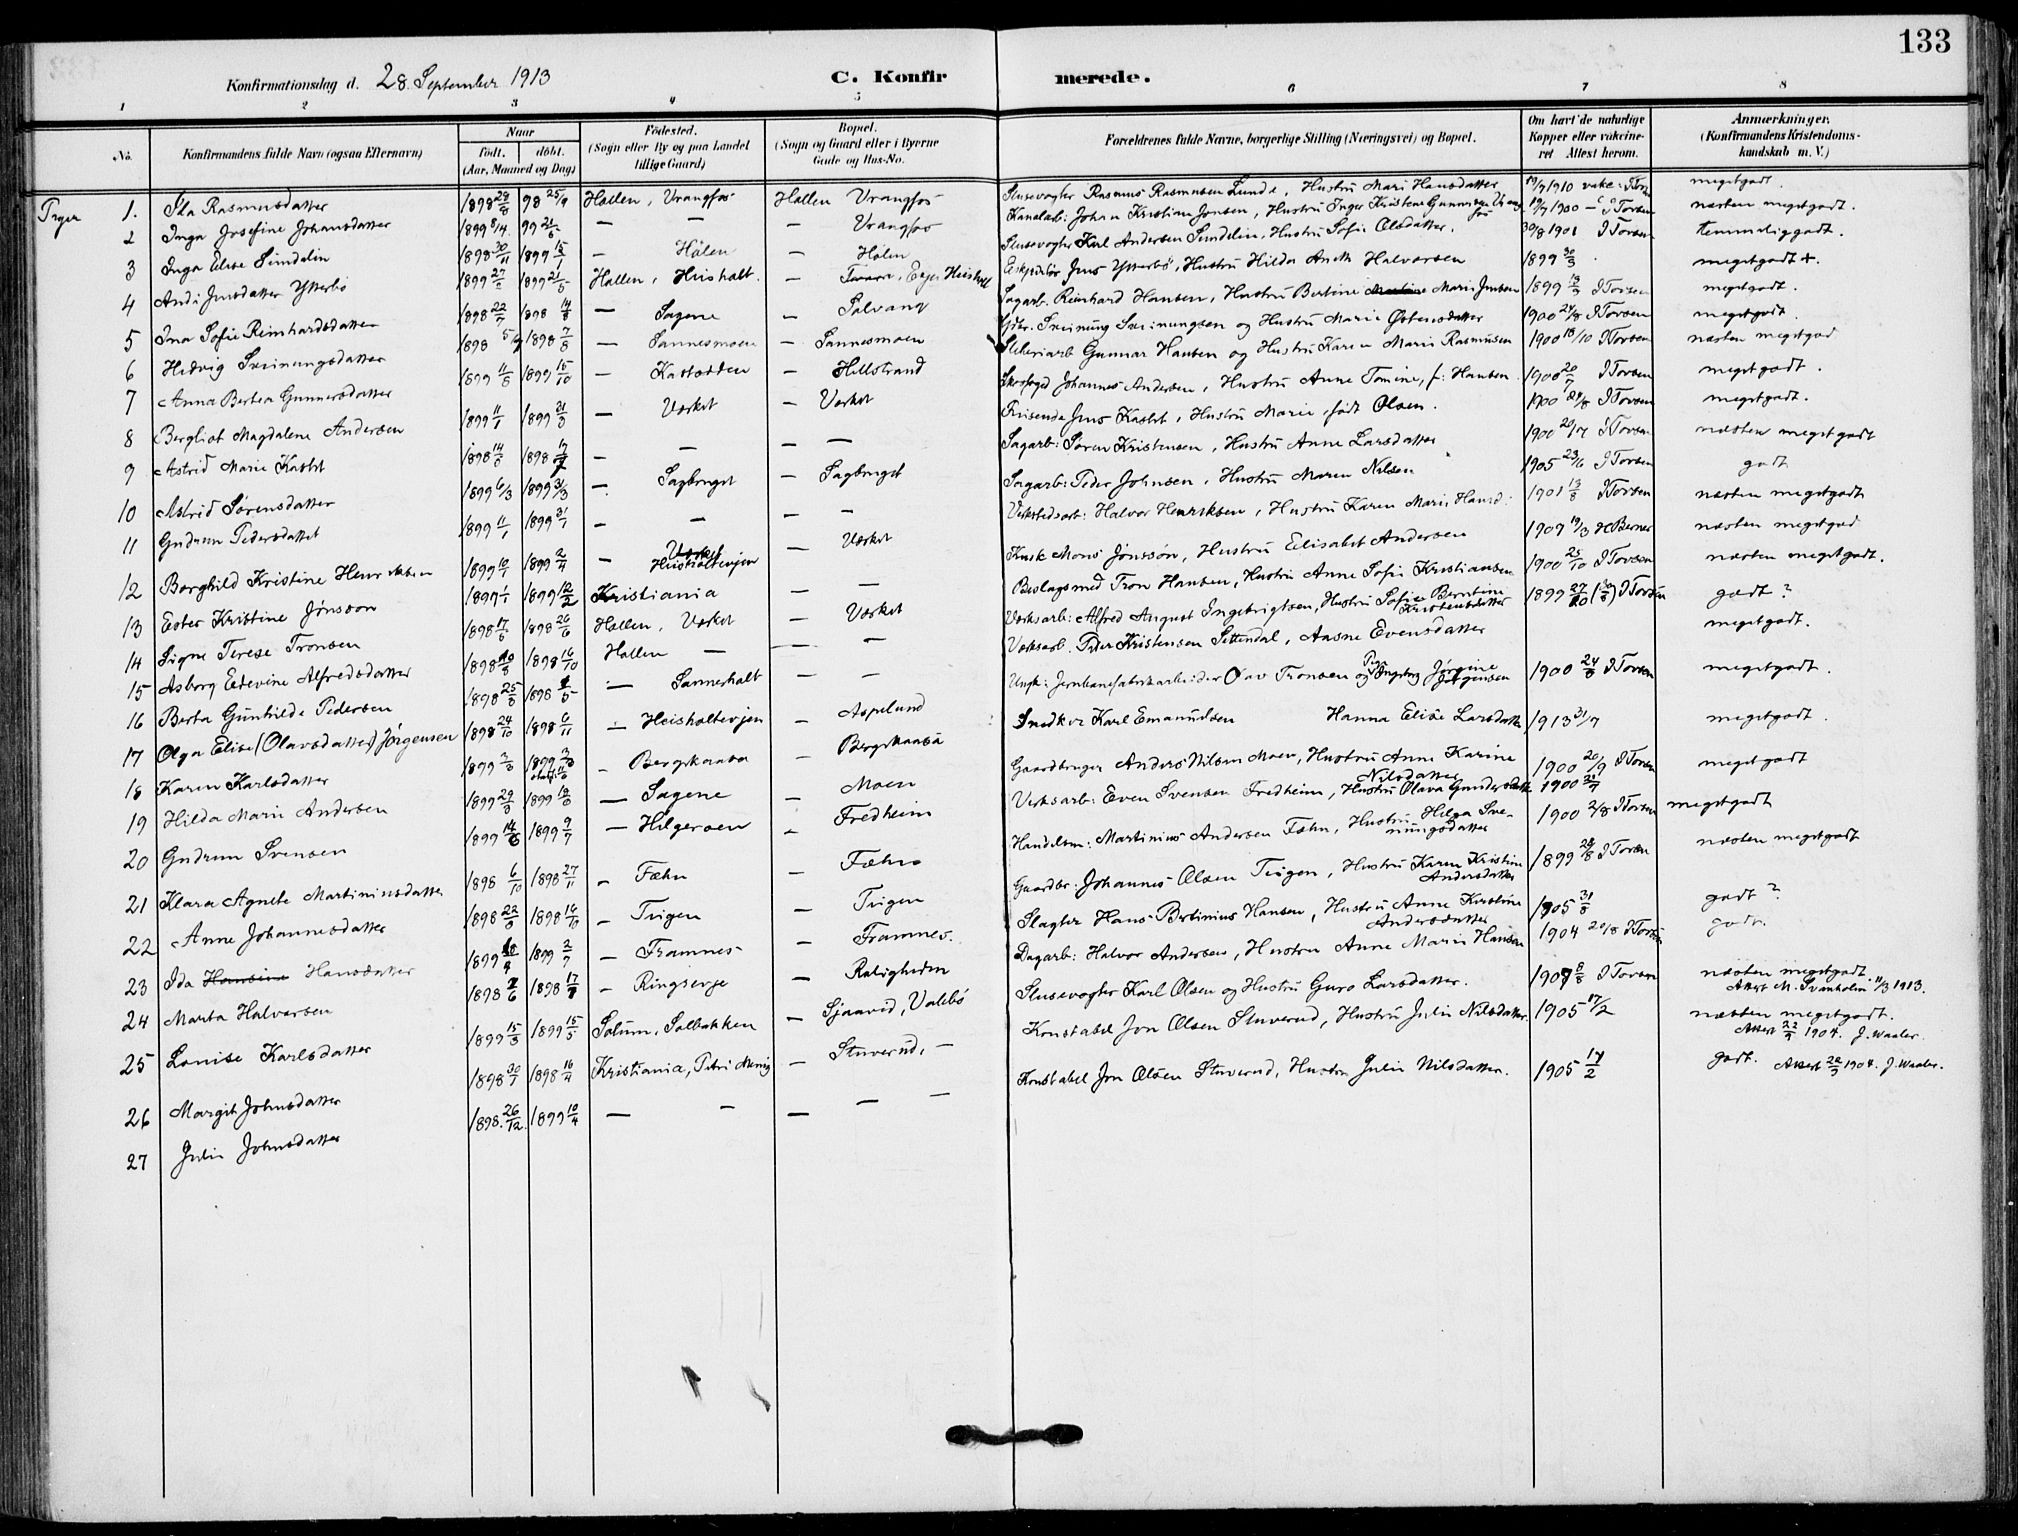 133
Konfirmationsdag d. 28. September 1913 C. Konfirmerede.
1 2 3 4 5 6 7 8
No. Konfirmandens fulde Navn (ogsaa Efternavn) Naar Født. døbt. (Aar, Maaned og Dag) Fødested. (Sogn eller By og paa Landet tillige Gaard) Bopæl. (Sogn og Gaard eller i Byerne Gade og Hus-No. Forældrenes fulde Navne, borgerlige Stilling (Næringsvei) og Bopæl. Om havt de naturlige Kopper eller vakcineret Attest herom. Anmærkninger. (Konfirmandens Kristendomskundskab m. V.)
Piger 1. Ida Rasmusdatter 1898 98 25/9 Hollen, Vrangfos Hollen Vrangfos Slusevogter Rasmus Rasmusen Lunde, Hustru Mari Hansdatter 1910 vakc: megetgodt.
2 Inga Josefine Johansdatter 1899 99 — — — Vrangfos Kanalarb: Johan Kristian Jonsen, Hustru Inger Kristene Gunnersen 1900 I Torsen næsten megetgodt.
3 Inga Elise Sundelin 1898 30/11 1899 — Hølen — Hølen Slusevogter Karl Andersen Sundelin, Hustru Sofie Olsdatter. 30/8 1901 I Torsen temmelig godt.
4 Andi Jensdatter Ytterbø 1899 1899 21/5 Hollen, Heisholt. — Ekspeditør Jens Ytterbø, Hustru Hilda Halvorsen 1899 megetgodt +.
5 Ina Sofie Reinhardsdatter 1898 22/7 1898 14/8 — Sagene — Solvang Sagarb. Reinhard Hansen, Hustru Bertine Marie Jensen 1899 I Torsen megetgodt.
6 Hedvig Sveinungsdatter 1898 1898 — Sannesmoen — Sannesmoen Sveinung Sveinungsen og Hustru Marie Østensdatter 1900 I Torsen megetgodt.
7 Anna Bertea Gunnersdatter 1899 11/8 1899 15/10 — Kastodden — Hellstrand Sliberiarb Gunnar Hansen og Hustru Karen Marie Rasmusen 1900 18/10 I Torsen næsten megetgod
8 Bergliot Magdalene Andersen 1899 11/1 1899 21/3 — Værket — Værket Skovfoged Johannes Andersen, Hustru Anne Tomine, f: Hansen 1900 20/7 I Torsen megetgodt.
9 Astrid Marie Kastet 1898 14/6 1898 — — — — Jens Kastet, Hustru Marie, født Olsen. 1900 24/8 I Torsen megetgodt.
10 Astrid Sørensdatter 1899 6/3 1899 31/3 — Sagbruget — Sagbruget Sagarb: Søren Kristensen, Hustru Anne Larsdatter 1900 20/7 I Torsen næsten megetgodt
11 Gudrun Pedersdatter 1899 11/1 1899 31/1 — — — — Sagarb: Peder Johnsen, Hustru Maren Nilsen 1905 23/6 I Torsen godt
12 Borghild Kristine Henriksen 1899 10/1 1899 2/4 — Heisholtveien — Værket Verkstedsarb: Halvor Henriksen, Hustru Karen Marie Hansd: 1901 13/8 I Torsen næsten megetgodt
13 Ester Kristine Jønsson 1899 1/1 1899 12/2 Kristiania — — Kusk Mons Jønssøn, Hustru Elisabet Andersen 1909 19/3 H Berner næsten megetgod
14 Signe Terese Tronsen 1898 17/6 1898 26/6 Hollen, Værket — Værket Beslagsmed Tron Hansen, Hustru Anne Sofie Kristiansen 1900 25/10 I Torsen næsten megetgodt.
15 Asborg Edevine Alfredsdatter 1898 1898 16/10 Hollen — — — Værksarb: Alfred August Ingebrigtsen, Hustru Sofie Berntine Kristensdatter 1899 I Torsen godt?
16 Berta Gunhilde Pedersen 1898 25/8 1898 — Sannerholt — — Værksarb. Peder Kristensen Settendal, Aasne Evensdatter megetgodt.
17 Olga Elise (Olavsdatter) Jørgensen 1898 24/10 1898 6/11 — Heisholtveien — Aspelund Ungk: Jernbanefabrikarbeider Olav Tronsen og Pige Ingeborg Jørgine Jørgensen 1900 24/8 I Torsen megetgodt.
18 Karen Karlsdatter 1899 1899 — Bergskaasa — Bergskaasa Snedker Karl Emanuelsen Hanna Elise Larsdatter 1913 31/7 megetgodt.
19 Hilda Marie Andersen 1899 29/3 1899 18/6 — Sagene — Moen Gaardbruger Anders Nilsen Moen, Hustru Anne Karine Nilsdatter 1900 20/9 I Torsen megetgodt
20 Gudrun Svensen 1899 1899 9/7 — Helgeroen — Fredheim Verksarb: Even Svensen Fredheim, Hustru Olava Gundersdatter 1900 megetgodt
21 Klara Agnete Martiniusdatter 1898 6/10 1898 27/11 — Fæhn — Fæhn Handelsm: Martinius Andersen Fæhn, Hustru Helga Sveinungsdatter 1900 2/8 I Torsen næsten megetgodt
22 Anne Johannesdatter 1898 22/8 1898 16/10 — Teigen — Teigen Gaardbr: Johannes Olsen Teigen, Hustru Karen Kristine Andersdatter 1899 I Torsen godt?
23 Ida Hansdatter 1899 1899 2/7 — Framnes — Framnes. Slagter Hans Bertinius Hansen, Hustru Anne Kirstine Andersdatter 1905 31/8 godt.
24 Marta Halvorsen 1898 1898 — Ringsevje — Roligheden Dagarb: Halvor Andersen, Hustru Anne Marie Hansen 1904 20/8 I Torsen
25 Louise Karlsdatter 1899 15/3 1899 15/5 Solum, Solbakken — Sjaavid, Valebø Slusevogter Karl Olsen og Hustru Guro Larsdatter. 190 I Torsen næsten megetgodt Attest M. Svanholm 11/3 1913.
26 Margit Johnsdatter 1898 30/1 1898 16/4 Kristiania, Petri Menig — Stuverud, — Konstabel Jon Olsen Stuverud, Hustru Julie Nilsdatter. 1905 17/2 næsten megetgodt. Attest 22/9 1904. J. Waaler.
27 Julie Johnsdatter 1898. 26/12. 1899 10/4 — — — — — Konstabel Jon Olsen Stuverud, Hustru Julie Nilsdatter. 1905 17/2 godt. Attest 22/9 1904. J. Waaler.